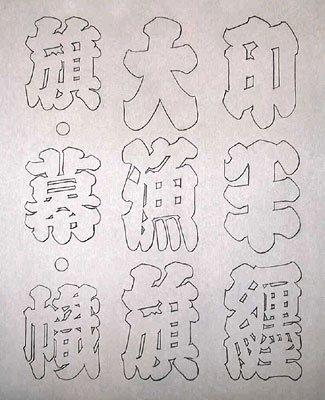 印半纏
大漁旗
旗・幕・幟